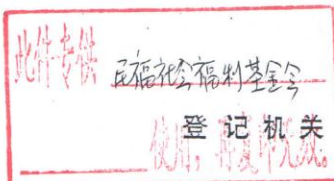 此件专供 民福社会福利基金会
登记机关
使用，再复印无效。